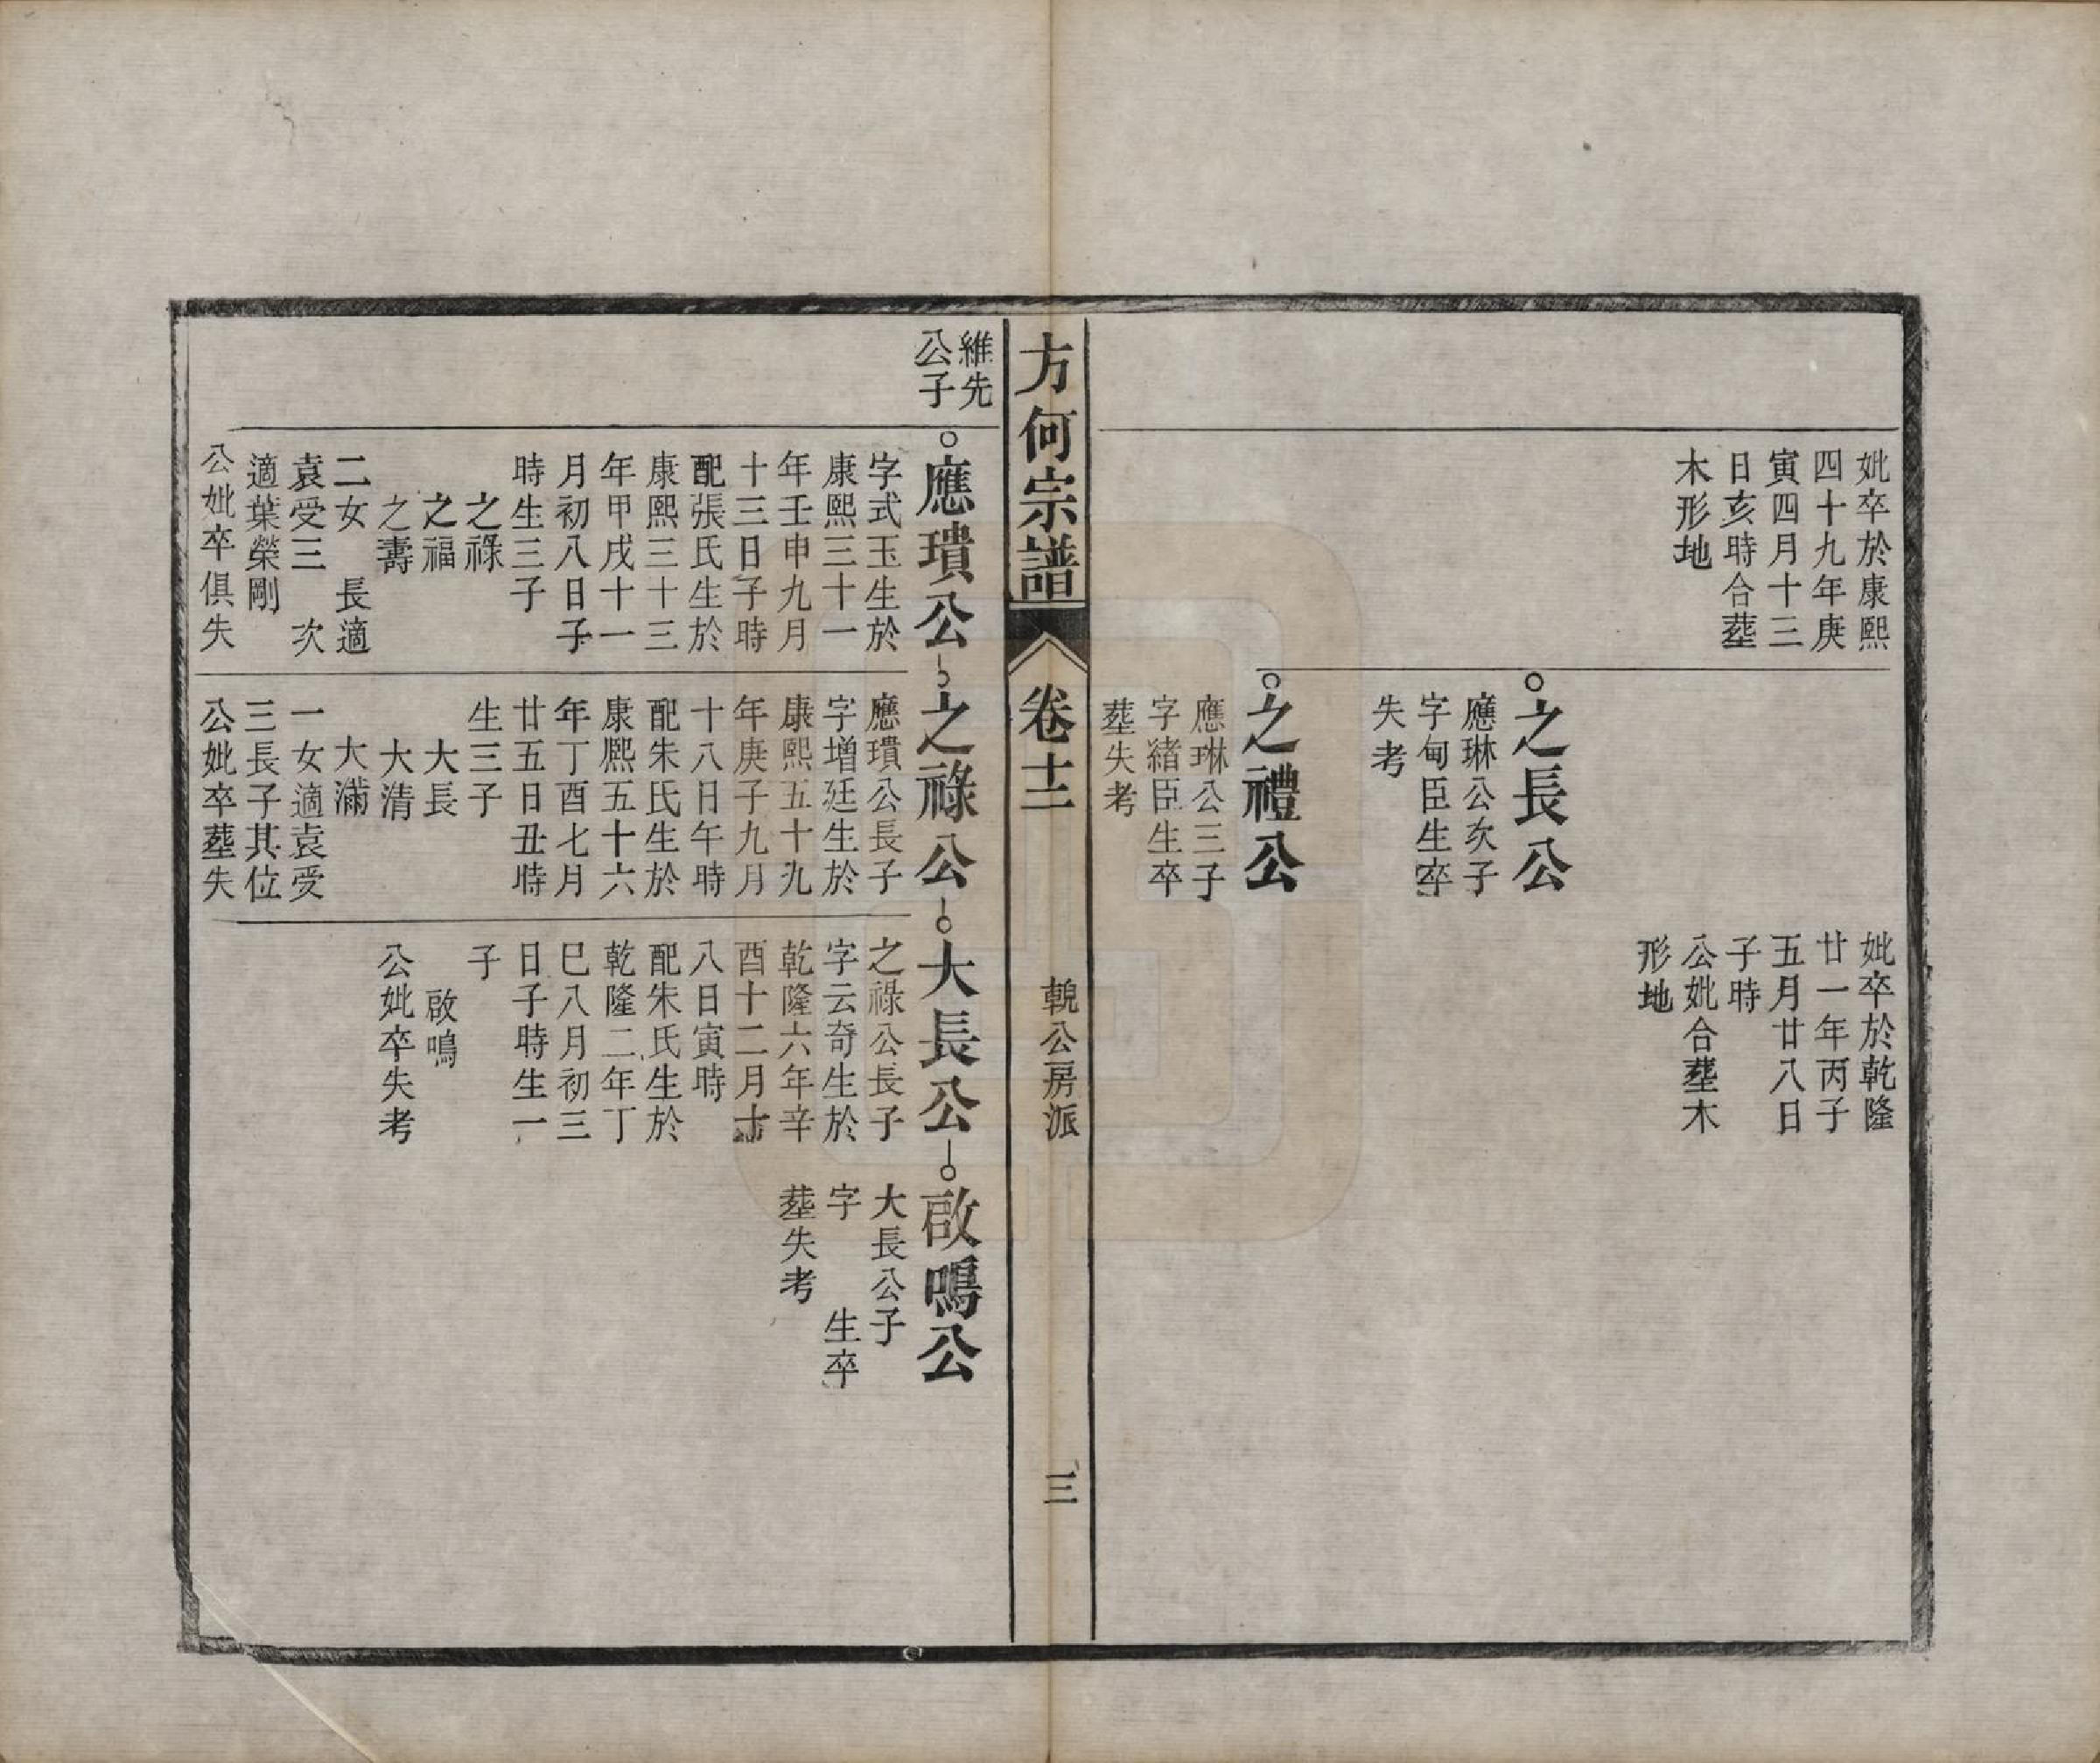 妣卒於康熙
四十九年庚
寅四月十三
日亥時合塟
木形地
妣卒於乾隆
廿一年丙子
五月廿八日
子時
公妣合塟木
形地
之長公
應琳公次子
字甸臣生卒
失考
之禮公
應琳公三子
字緒臣生卒
塟失考
方何宗譜
卷十二
公房派
三
維先
公子
應璝公
字式玉生於
康熙三十一
年壬申九月
十三日子時
配張氏生於
康熙三十三
年甲戌十一
月初八日子
時生三子
之祿
之福
之壽
二女 長適
袁受三 次
適葉榮剛
公妣卒俱失
之祿公
應璝公長子
字增廷生於
康熙五十九
年庚子九月
十八日午時
配朱氏生於
康熙五十六
年丁酉七月
廿五日丑時
生三子
大長
大清
大滿
一女適袁受
三長子其位
公妣卒塟失
大長公
之祿公長子
字云奇生於
乾隆六年辛
酉十二月十
八日寅時
配朱氏生於
乾隆二年丁
巳八月初三
日子時生一
子
啟鳴
公妣卒失考
啟鳴公
大長公子
字 生卒
塟失考